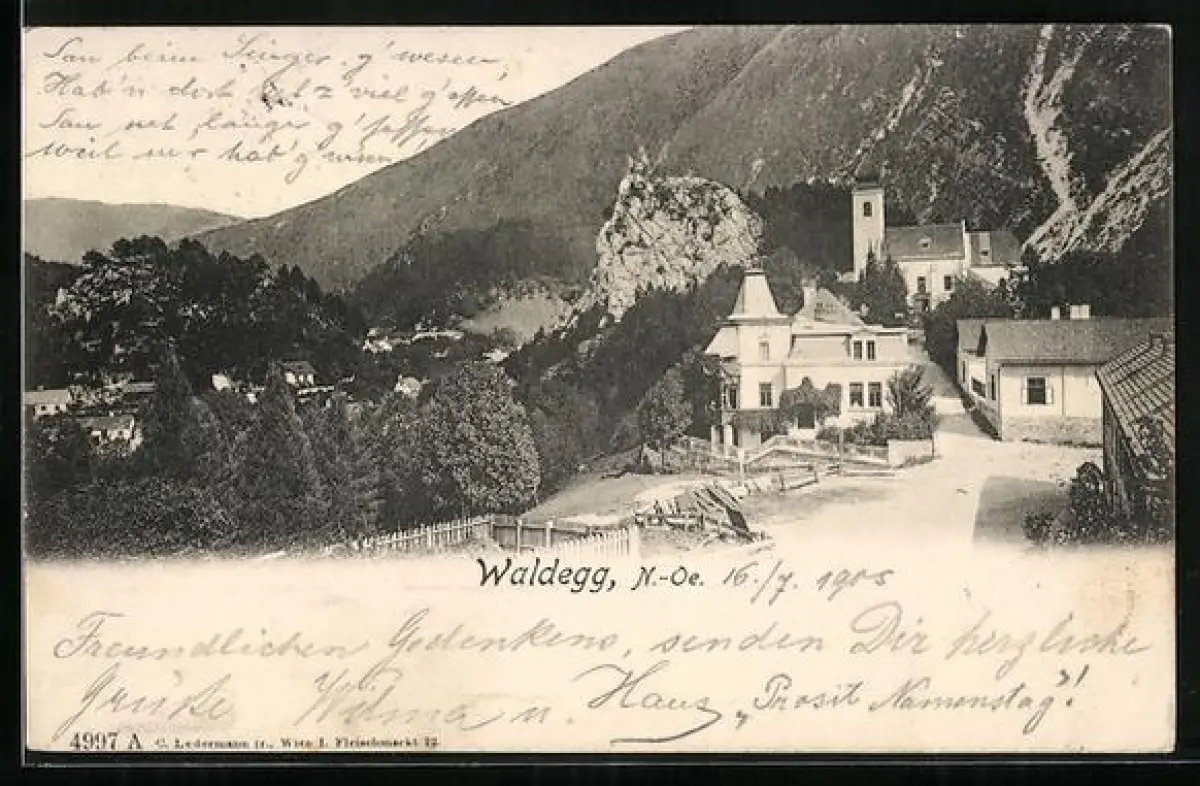 San beim Singer g'wesen,
Hab'n doch net z'viel g'essen
San net länger g'sessen
weil m'r hab'n g
Waldegg, N.-Oe. 16./7. 1905
Freundlichen Gedenkens, senden Dir herzliche
Grüße Wilma u. Hans „Prosit Namenstag"!
4997 A C. Ledermann jr., Wien I. Fleischmarkt 12.